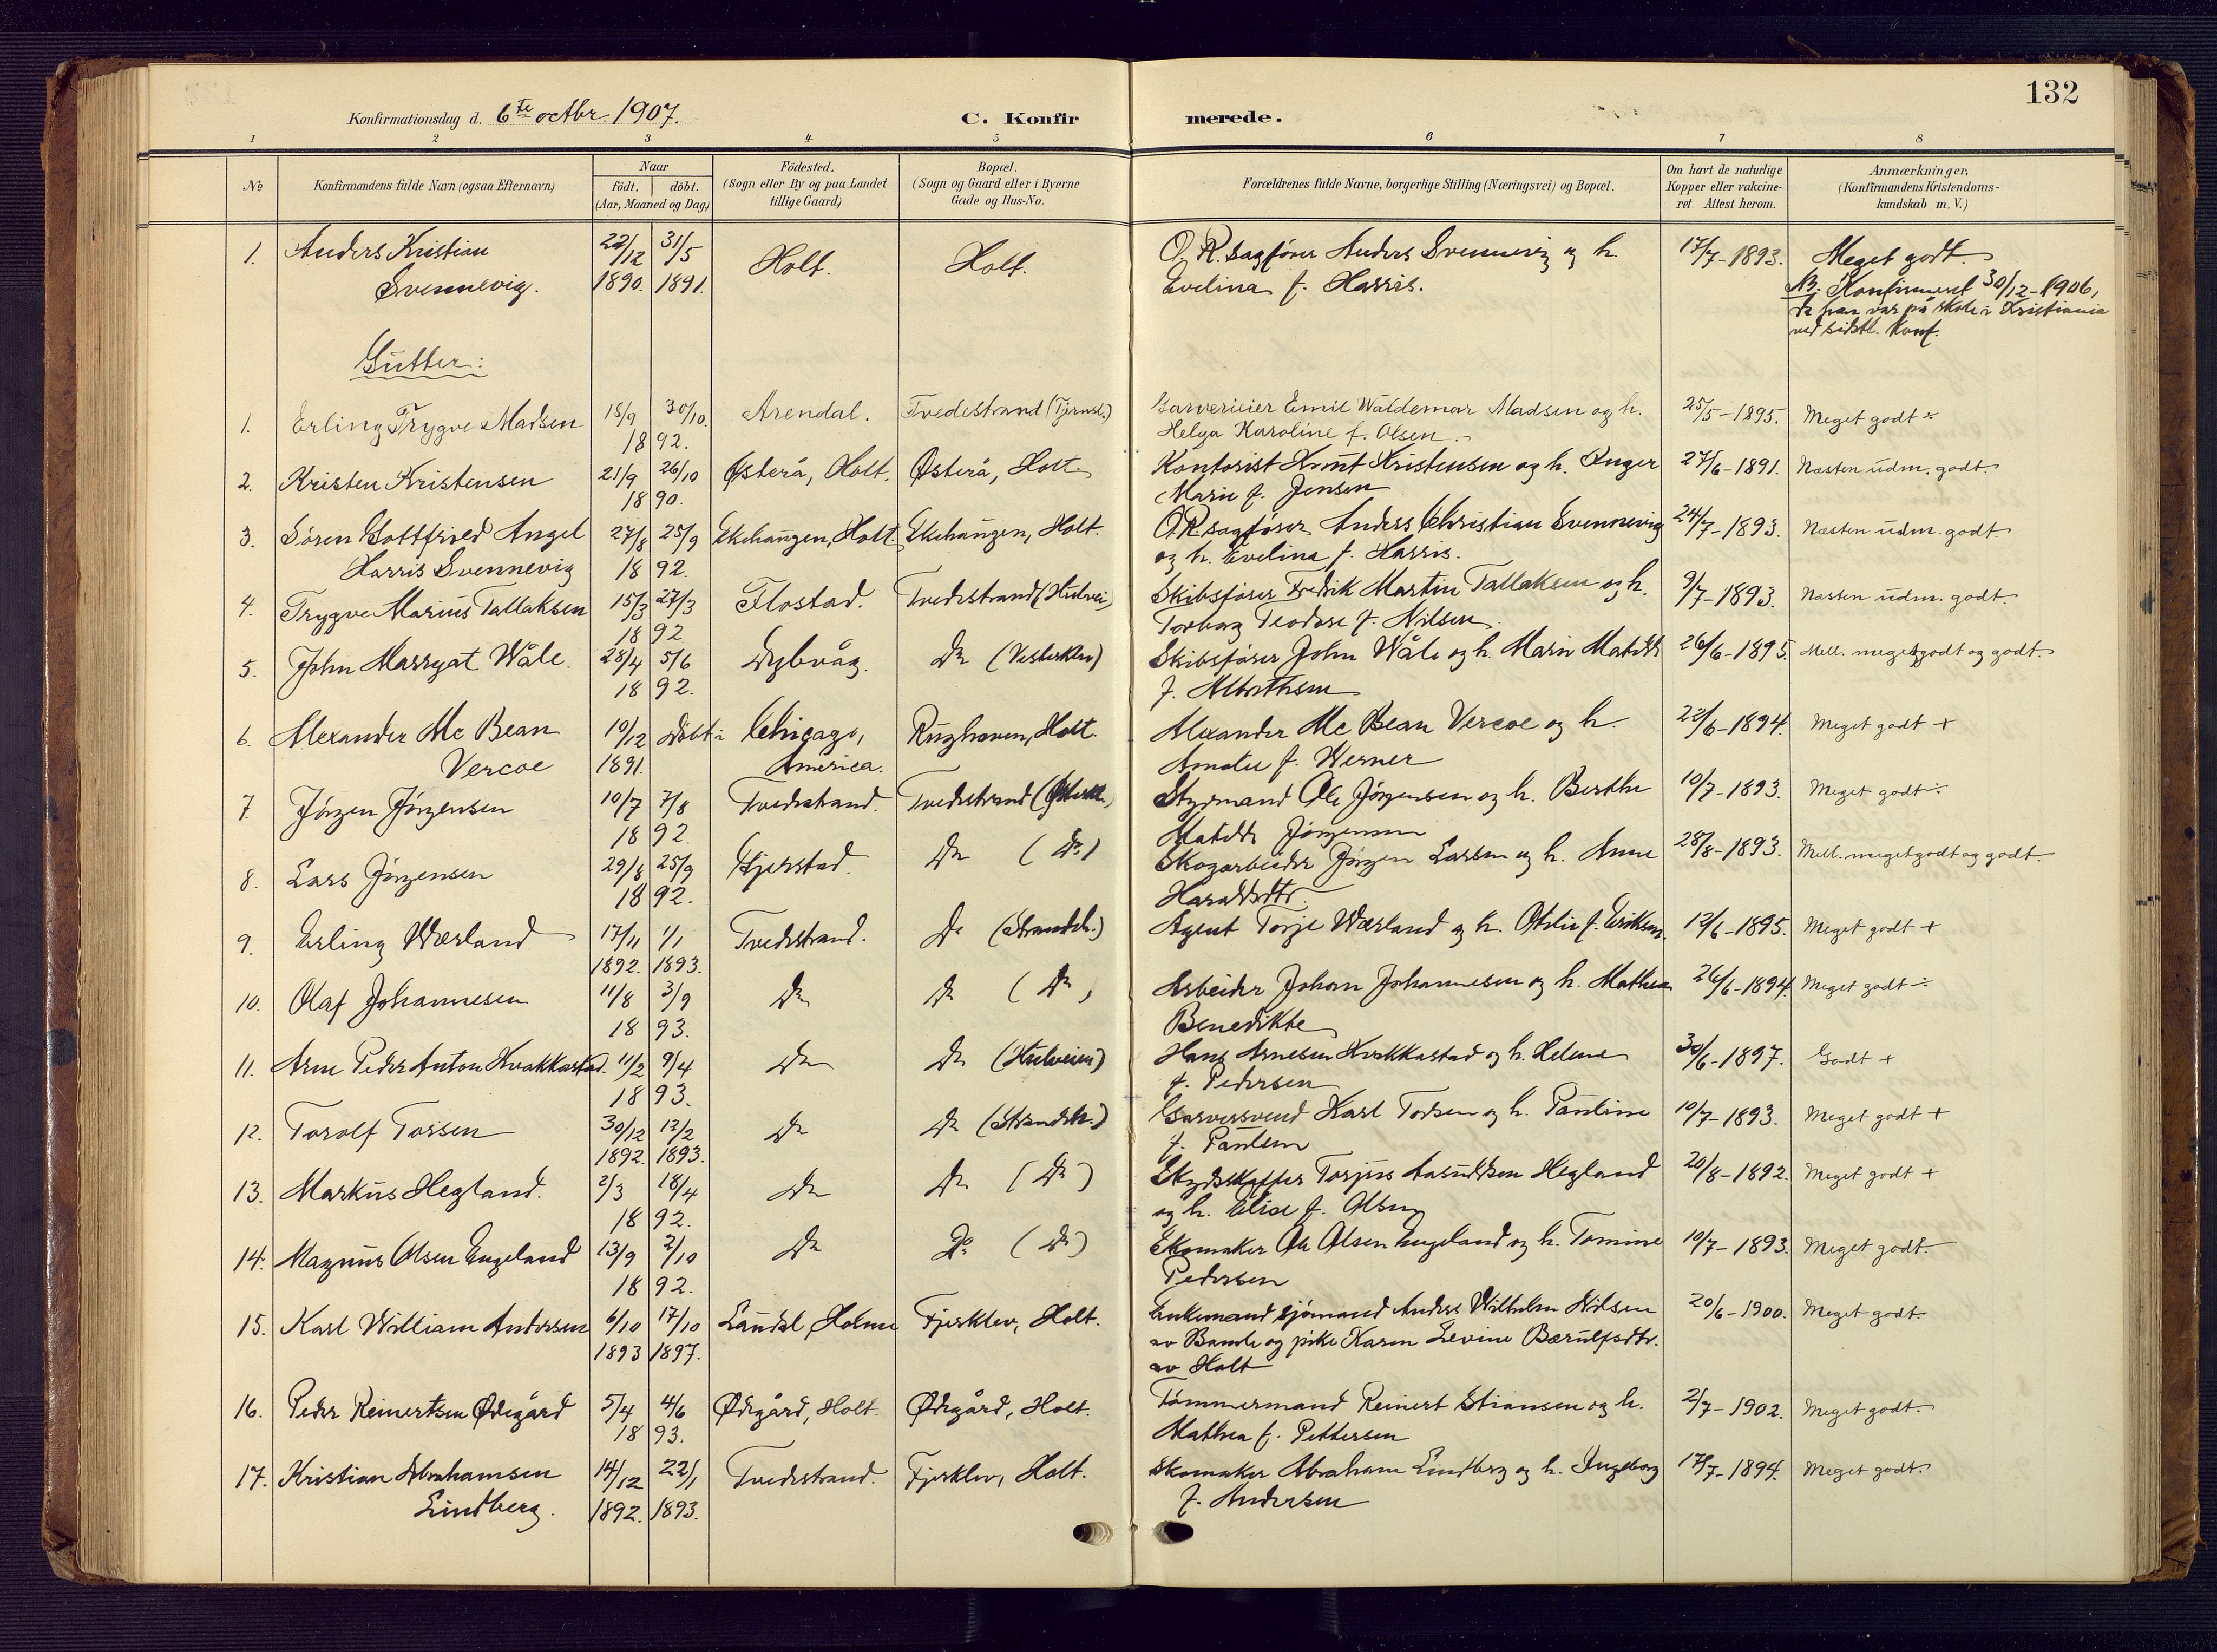 132
Konfirmationsdag d. 6te octbr. 1907.
C. Konfirmerede.
1 2 3 4 5 6 7 8
No
Konfirmandens fulde Navn (ogsaa Efternavn)
Naar
födt. döbt.
(Aar, Maaned og Dag)
Födested.
(Sogn eller By og paa Landet
tillige Gaard)
Bopæl.
(Sogn og Gaard eller i Byerne
Gade og Hus-No.
Forældrenes fulde Navne, borgerlige Stilling (Næringsvei) og Bopæl.
Om havt de naturlige
Kopper eller vakcine-
ret. Attest herom.
Anmærkninger.
(Konfirmandens Kristendoms-
kundskab m. V.)
1. Anders Kristian 22/12 31/5 Holt. Holt. O.R. Sagfører Anders Svennevig og h. 17/7-1893. Meget godt.
Svennevig. 1890. 1891. Evelina f. Harris. NB. Konfirmeret 30/12-1906,
da han var på skole i Kristiania
ved sidstl. Konf.
Gutter:
1. Erling Trygve Madsen 18/9 30/10. Arendal. Tvedestrand (Tjernsl.) Garverieier Emil Waldemar Madsen og h. 25/5-1895. Meget godt
1892. Helga Karoline f. Olsen.
2. Kristen Kristensen 21/9 26/10 Østerå, Holt. Østerå, Holt. Kontorist Knut Kristensen og h. Inger 27/6-1891. Næsten udm. godt.
1890. Marie f. Jensen
3. Søren Gottfried Angel 27/8 25/9 Ekehaugen, Holt Ekehaugen, Holt. O.R. sagfører Anders Christian Svennevig 24/7-1893. Næsten udm. godt.
Harris Svennevig 1892. og h. Evelina f. Harris.
4. Trygve Marius Tallaksen 15/3 27/3 Flostad. Tvedestrand (Hulvei) Skibsfører Fredrik Martin Tallaksen og h. 9/7-1893. Næsten udm. godt.
1892 Torborg Teodore f. Nilsen.
5. John Marryat Wåle. 28/4 5/6 Dybvåg. Do (Vesterklev) Skibsfører John Wåle og h. Marie Matilde 26/6-1895. Mell. megetgodt og godt.
1892. f. Albertsen
6. Alexander Mc Bean 10/12 Døbt i Chicago, Rughaven, Holt. Alexander Mc Bean Vercoe og h. 22/6-1894. Meget godt +
Vercoe 1891. America. Amalie f. Werner
7. Jörgen Jörgensen 10/7 7/8 Tvedestrand. Tvedestrand (Østerkl.) Styrmand Ole Jörgensen og h. Berthe 10/7-1893. Meget godt ÷
1892. Matilde Jörgensen
8. Lars Jörgensen 29/8 25/9 Gjerstad. Do (Do) Skogarbeider Jörgen Larsen og h. Anne 28/8-1893. Mell. meget godt og godt.
1892. Haraldsdtr.
9. Erling Wærland 17/11 1/1 Tvedestrand. Do (Strandch.) Agent Torje Wærland og h. Otelie f. Eriksen. 12/6-1895. Meget godt +
1892. 1893.
10. Olaf Johannesen 11/8 3/9 Do Do (Do) Arbeider Johan Johannesen og h. Mathea 26/6-1894. Meget godt ÷
1893. Benedikte
11. Arne Peder Anton Kvakkastad. 11/2 9/4 Do Do (Hulveien) Hans Arnesen Kvakkastad og h. Helene 30/6-1897. Godt +
1893. f. Pedersen
12. Torolf Torsen 30/12 12/2 Do Do (Strandch.) Garversvend Karl Torsen og h. Pauline 10/7-1893. Meget godt +
1892. 1893. f. Paulsen
13. Markus Hegland. 2/3 18/4 Do Do (Do) Skydsskaffer Torjus Aasuldsen Hegland 20/8-1892. Meget godt +
1892. og h. Elise f. Olsen
14. Magnus Olsen Engeland 13/9 2/10 Do Do (Do) Skomaker Ole Olsen Engeland og h. Tomine 10/7-1893. Meget godt.
1892. Pedersen
15. Karl William Andersen 6/10 17/10 Laudal, Holme Fjerklev, Holt. Enkemand sjömand Anders Wilhelm Nilsen 20/6-1900. Meget godt.
1893 1897. av Bamle og pike Karen Levine Bærulfsdtr.
av Holt
16. Peder Reinertsen Ødegård 5/4 4/6 Ødegård, Holt. Ødegård, Holt. Tømmermand Reinert Stiansen og h. 2/7-1902. Meget godt.
1893. Mathea f. Pettersen
17. Kristian Abrahamsen 14/12 22/1 Tvedestrand. Fjerklev, Holt. Skomaker Abraham Lindberg og h. Ingeborg 17/7-1894. Meget godt.
Lindberg. 1892. 1893. f. Andersen